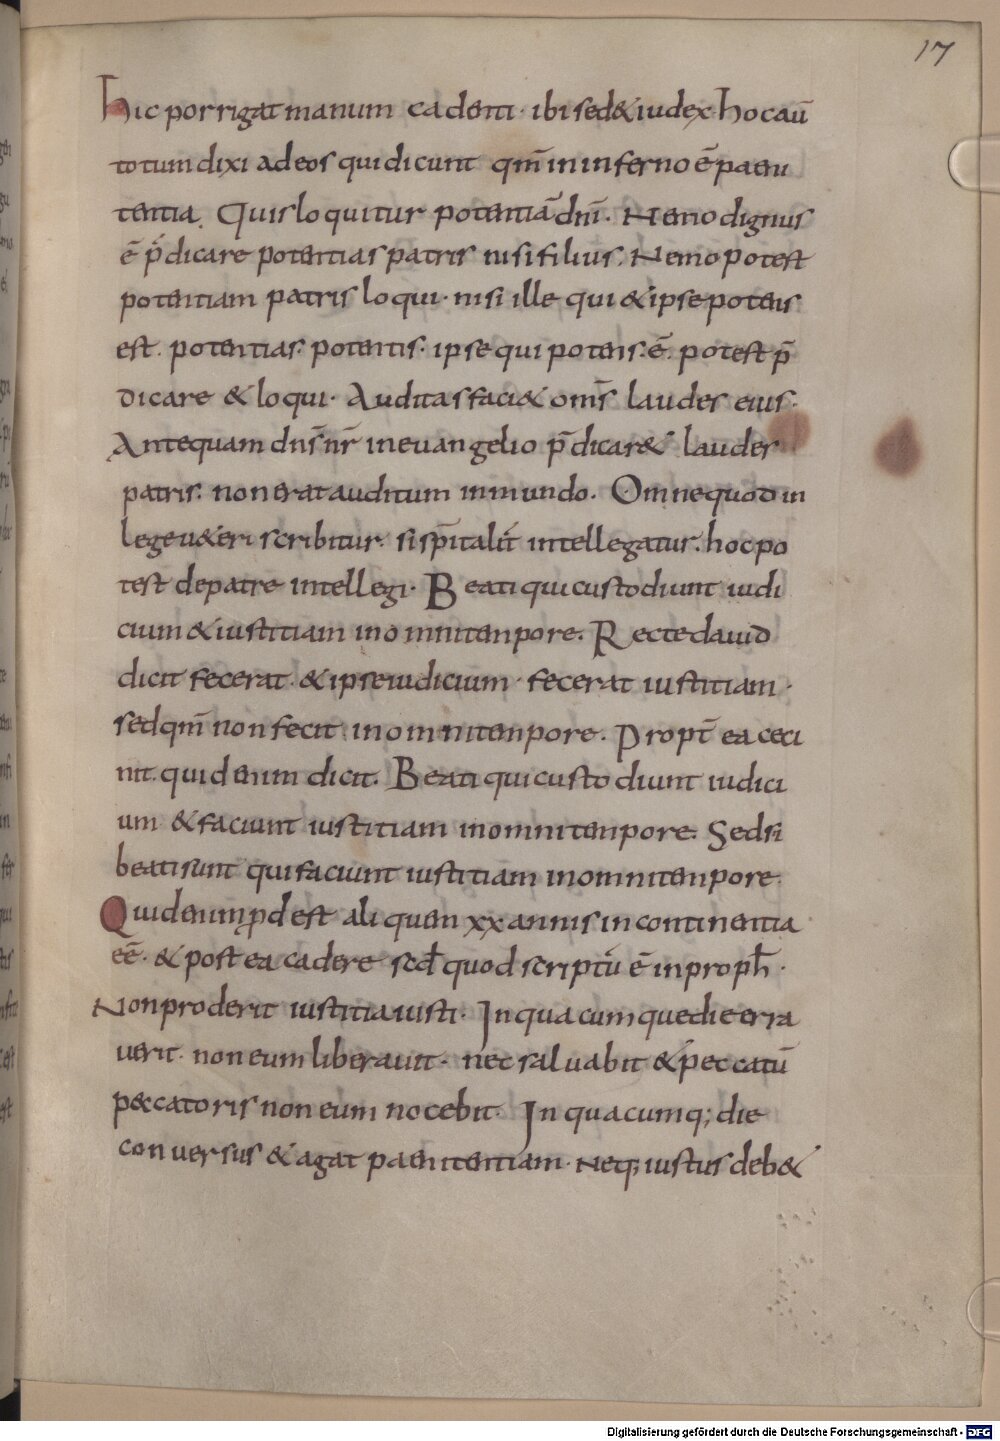 17
Hic porrigat manum cadenti · ibi sed& iudex · hoc aū
totum dixi adeos qui dicunt qm̄ in inferno ē paeni
tentia. Quis loquitur potentiā dn̄i · Nemo dignus
ē p̄dicare potentias patris nisi filius. Nemo potest
potentiam patris loqui · nisi ille qui & ipse potens
est. potentias potentis · ipse qui potens ē. potest p̄
dicare & loqui · Auditas faci& om̄s laudes eius ·
Antequam dn̄s nr̄ in euangelio p̄dicar& laudes
patris. non erat auditum in mundo. Omne quod in
lege u&eri scribitur. si sp̄italit̄ intellegatur. hoc po
test de patre intellegi · Beati qui custodiunt iudi
cium & iustitiam in omni tempore. Recte dauid
dicit fecerat · & ipse iudicium · fecerat iustitiam ·
sed qm̄ non fecit in omni tempore. Propt̄ ea ceci
nit. quid enim dicit. Beati qui custodiunt iudici
um & faciunt iustitiam in omni tempore. Sed si
beati sunt qui faciunt iustitiam in omni tempore
Quid enim ꝓdest aliquem xx annis in continentia
eē · & postea cadere sed quod scriptū ē in proph̄ ·
Non proderit iustitia iusti · In quacumque die erra
uerit · non eum liberauit · nec saluabit & peccatū
p&catoris non eum nocebit · In quacumq; die
conuersus & agat paenitentiam · Neq; iustus deb&
Digitalisierung gefördert durch die Deutsche Forschungsgemeinschaft - DFG